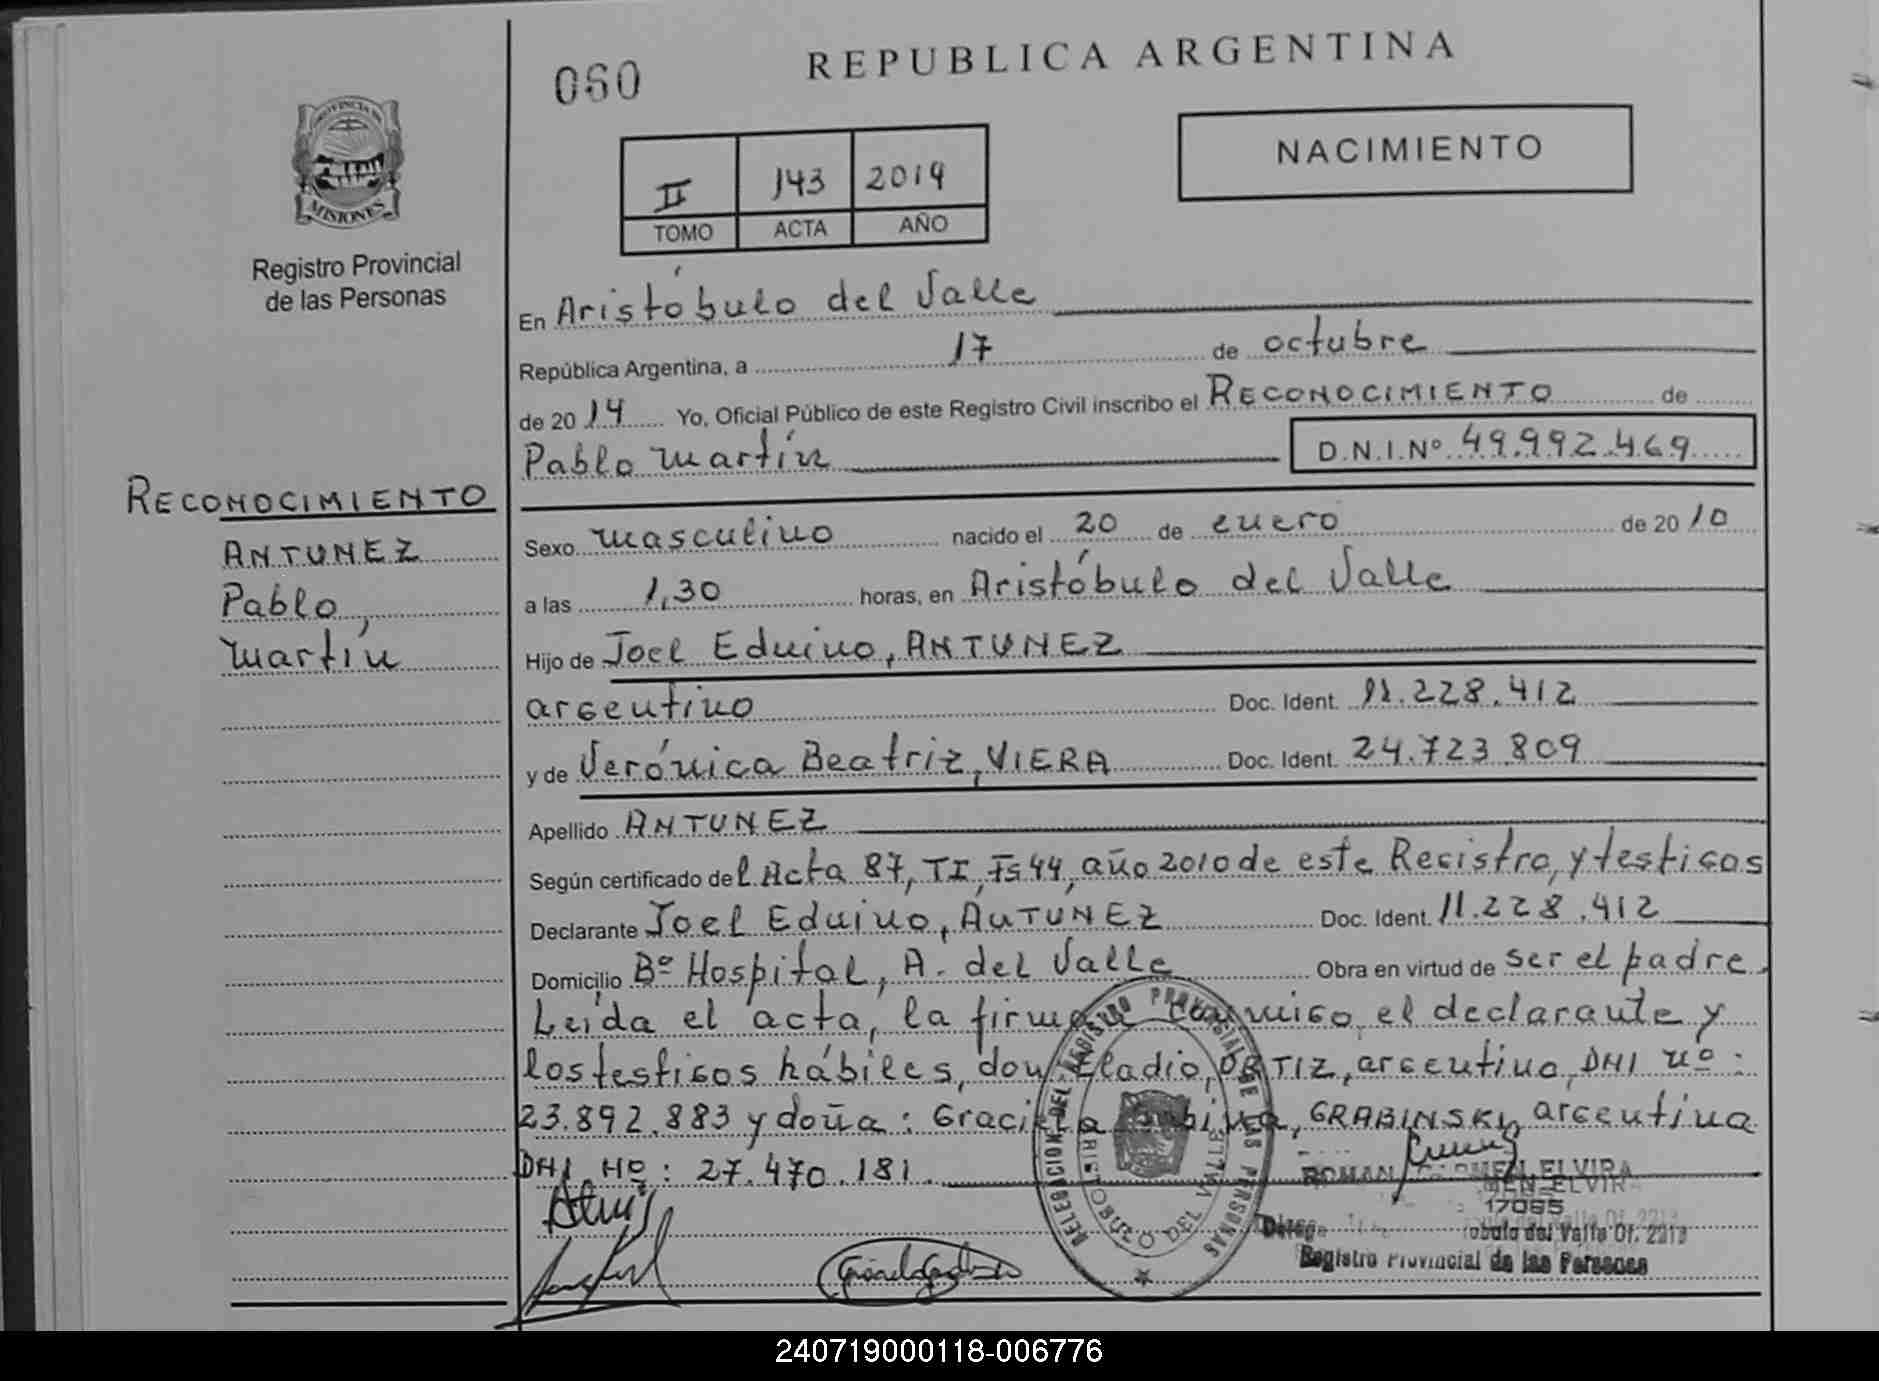 060
REPUBLICA ARGENTINA
PROVINCIA DE
MISIONES
Registro Provincial
de las Personas
II 143 2014
TOMO ACTA AÑO
NACIMIENTO
En Aristóbulo del Valle
República Argentina, a 17 de octubre
de 2014 Yo, Oficial Público de este Registro Civil inscribo el RECONOCIMIENTO de
Pablo Martín D.N.I.Nº 49.992.469
RECONOCIMIENTO
ANTUNEZ
Pablo
Martín
Sexo masculino nacido el 20 de enero de 2010
a las 1,30 horas, en Aristóbulo del Valle
Hijo de Joel Eduino, ANTUNEZ
argentino Doc. Ident. 11.228.412
y de Verónica Beatriz, VIERA Doc. Ident. 24.723.809
Apellido ANTUNEZ
Según certificado del Acta 87, TI, Fs 44, año 2010 de este Registro, y testigos
Declarante Joel Eduino, ANTUNEZ Doc. Ident. 11.228.412
Domicilio Bº Hospital, A. del Valle Obra en virtud de ser el padre.
Leída el acta, la firman conmigo, el declarante y
los testigos hábiles, don Eladio, ORTIZ, argentino, DNI nº:
23.892.883 y doña: Graciela GRABINSKY, argentina
DNI Nº: 27.470.181.
DELEGACION DEL REGISTRO PROVINCIAL DE LAS PERSONAS
ARISTOBULO DEL VALLE
ROMAN CARMEN ELVIRA
17065
del Valle Of. 2213
Registro Provincial de las Personas
240719000118-006776